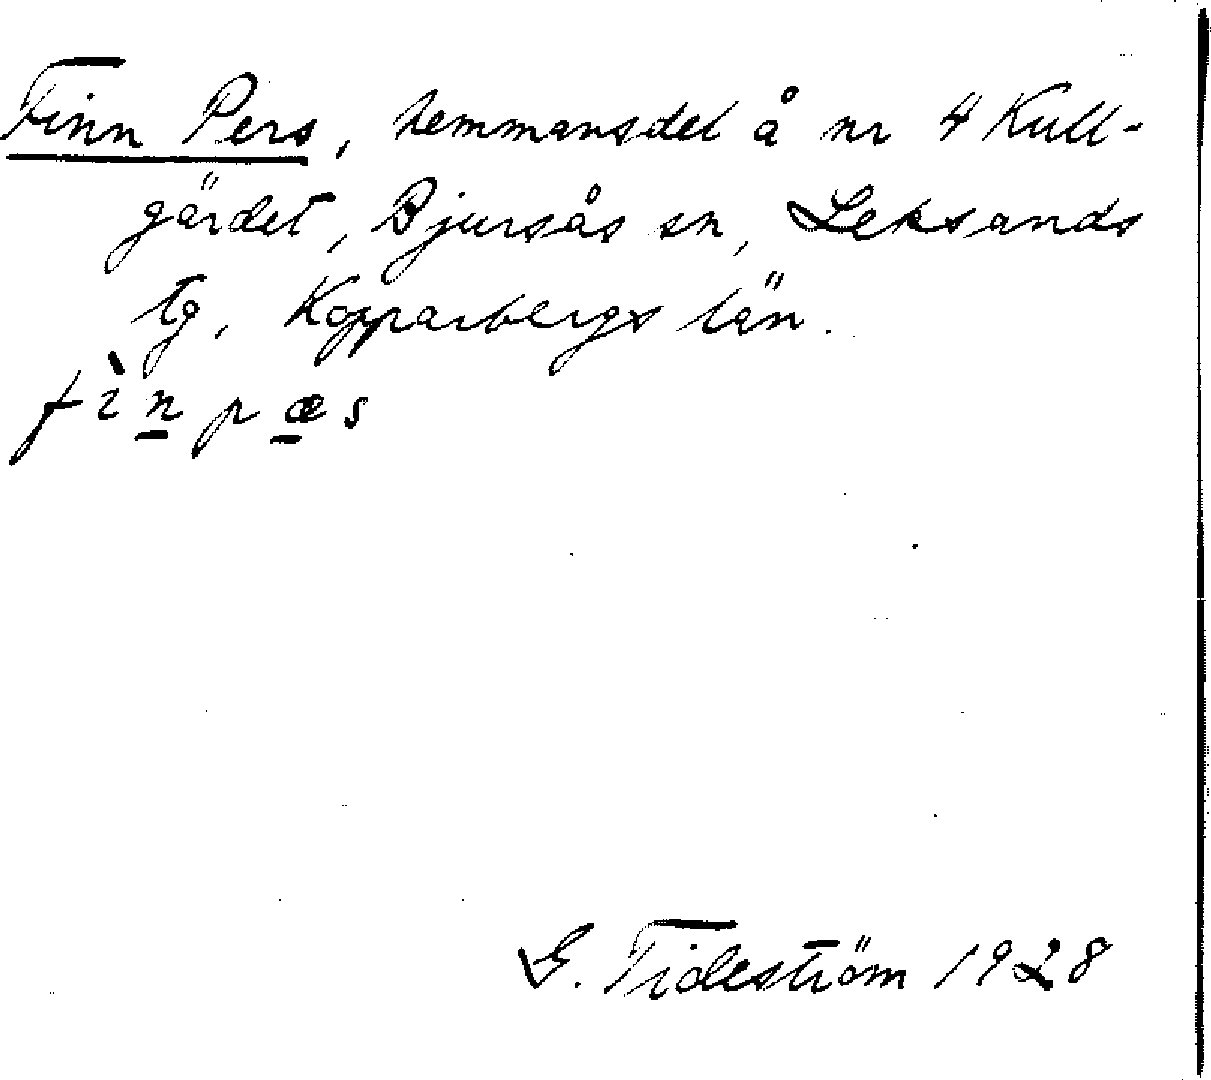 Finn Pers, hemmansdel å nr 4 Kull-
gärdet, Bjursås sn, Leksands
tg, Kopparbergs län.
fìn̲pæ̲s
G. Tideström 1928